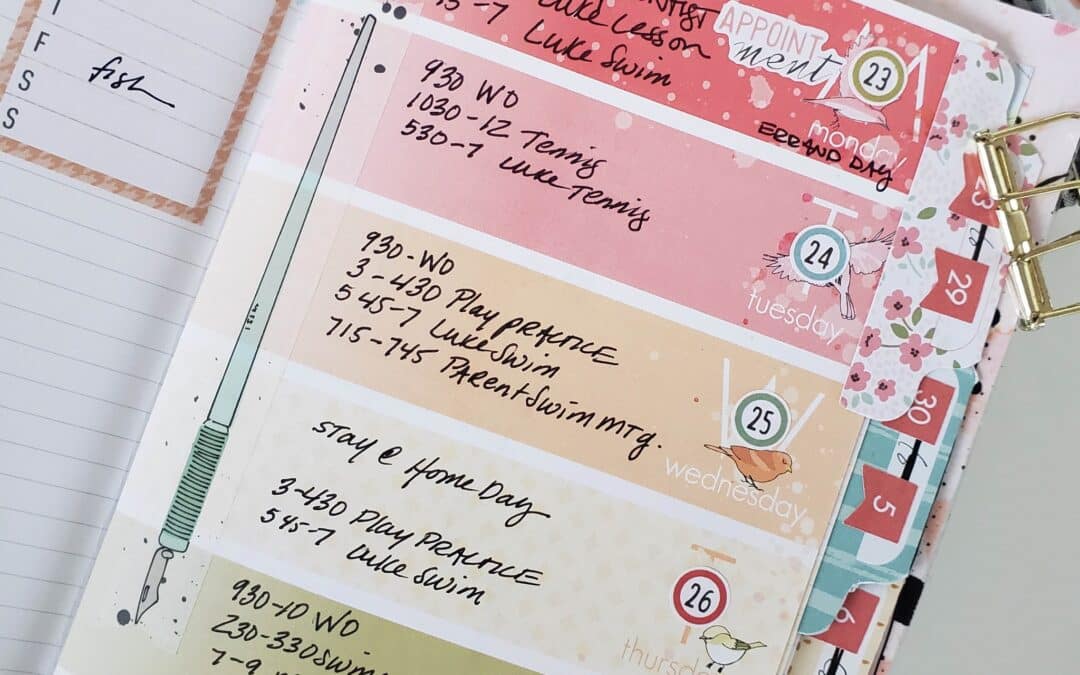 F
S
S
fish
APPOINT
ment
15-7 Luke Lesson
Luke Swim
23
monday
ERRAND DAY
930 WO
1030-12 Tennis
530-7 Luke Tennis
24
tuesday
930-WO
3-430 Play PRACTICE
545-7 Luke Swim
715-745 PARent Swim mtg.
25
wednesday
Stay @ Home Day
3-430 Play PRACTICE
545-7 Luke Swim
26
thursd
930-10 WO
230-330 Swim
7-9
23
29
30
5
6